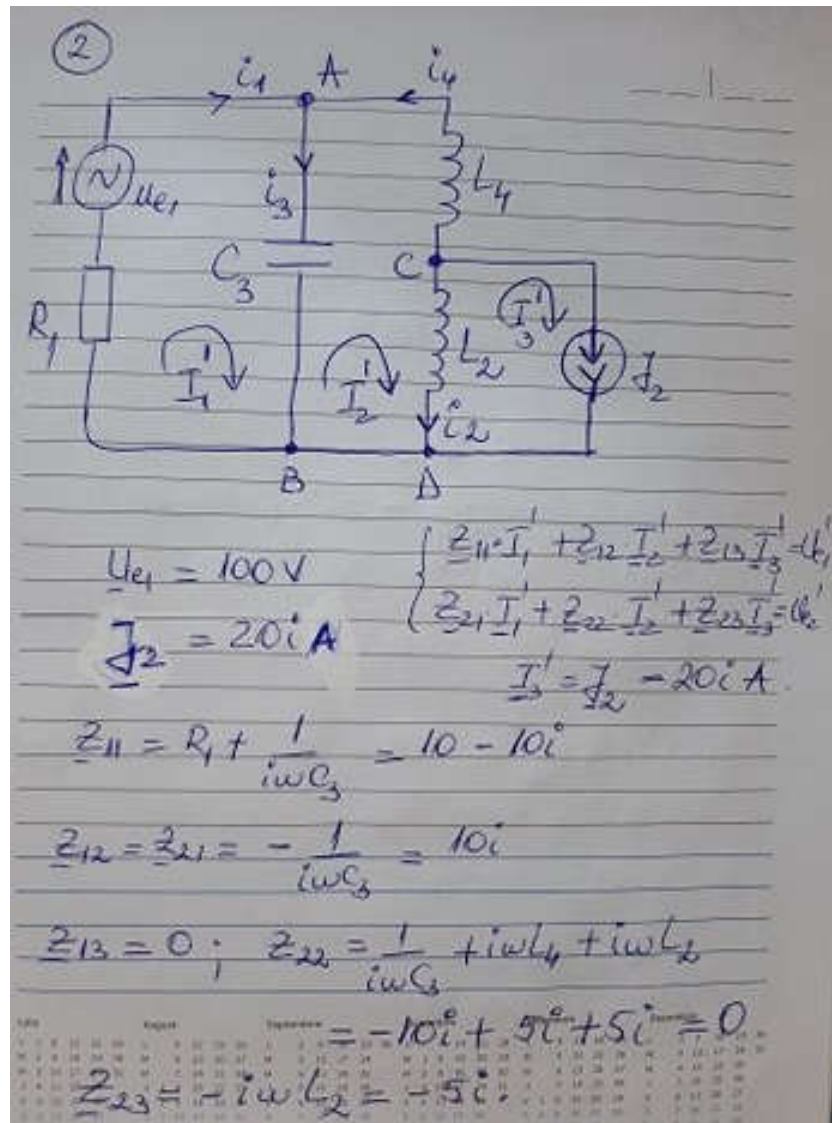 2
i1 A i4
ue1 i3 L4
C3 C
R1 I1' I2' L2 I3' J2
i2
B D
Ue1 = 100 V
J2 = 20i A
{ Z11·I1' + Z12 I2' + Z13 I3' = Ue1'
Z21·I1' + Z22·I2' + Z23 I3' = Ue2'
I3' = J2 - 20i A.
Z11 = R1 + 1/(iωC3) = 10 - 10i
Z12 = Z21 = - 1/(iωC3) = 10i
Z13 = 0; Z22 = 1/(iωC3) + iωL4 + iωL2
= -10i + 5i + 5i = 0
Z23 = -iωL2 = -5i.